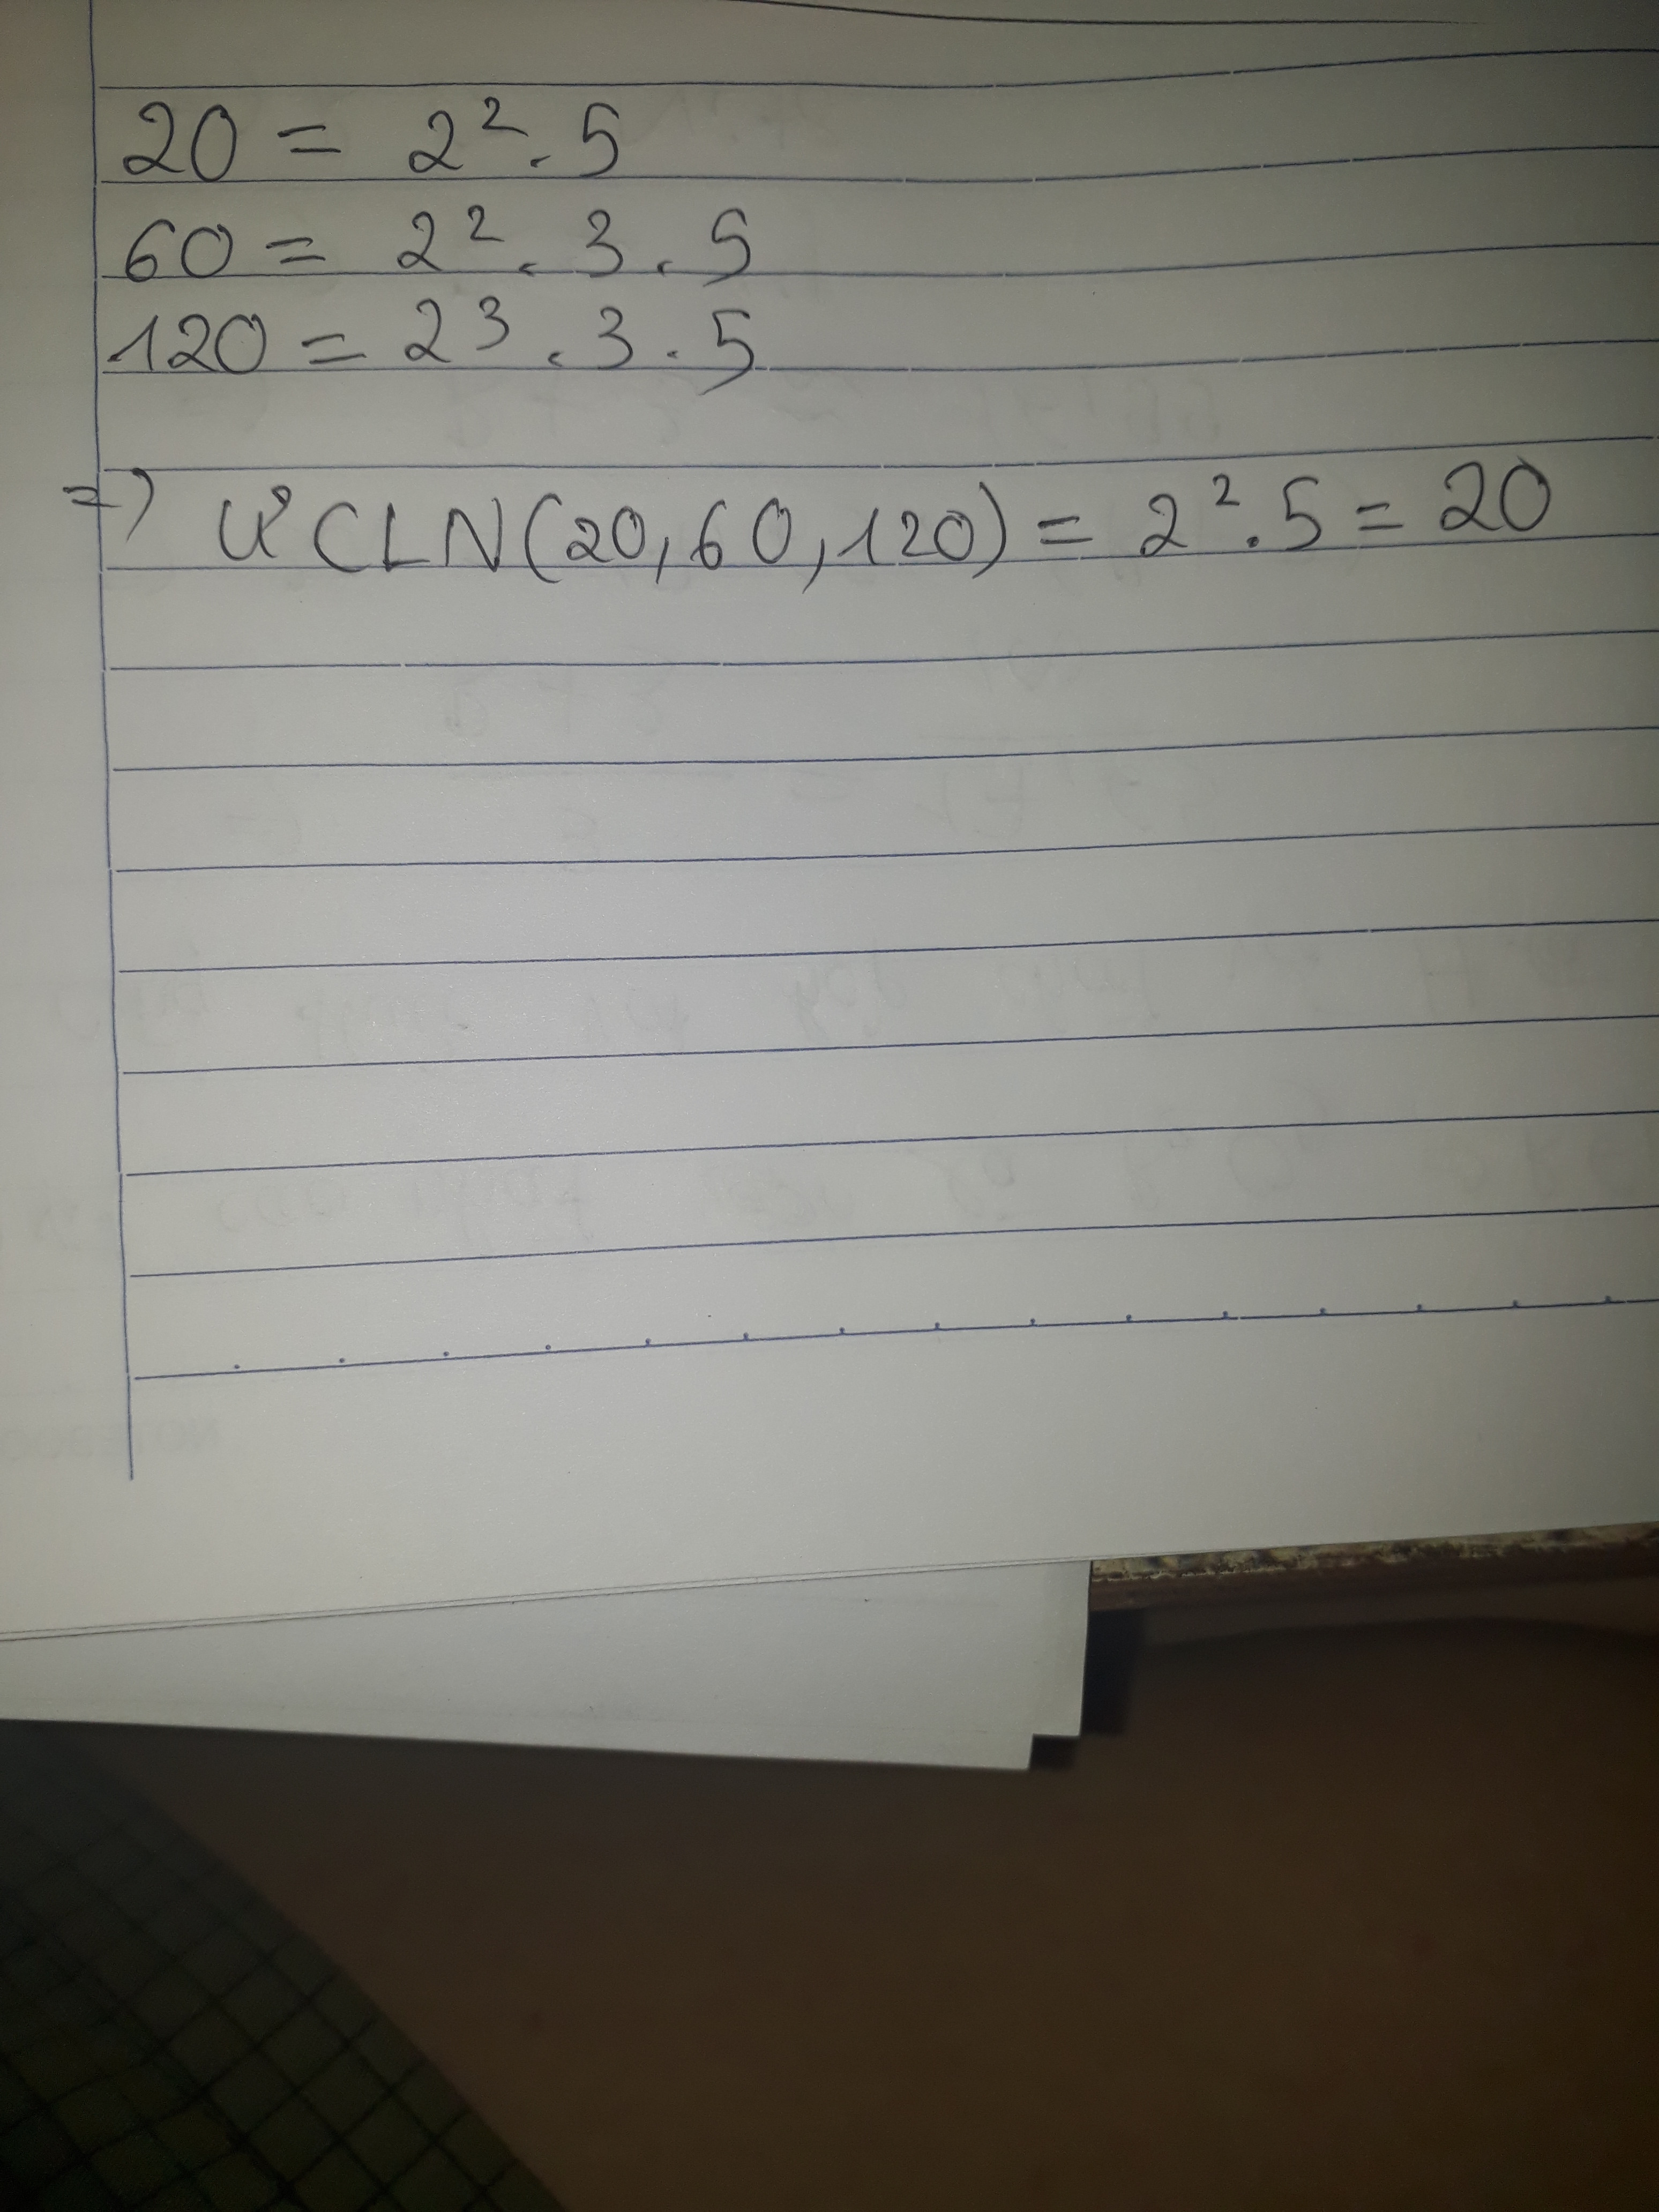 20 = 2² . 5
60 = 2² . 3 . 5
120 = 2³ . 3 . 5
=> ƯCLN(20,60,120) = 2² . 5 = 20